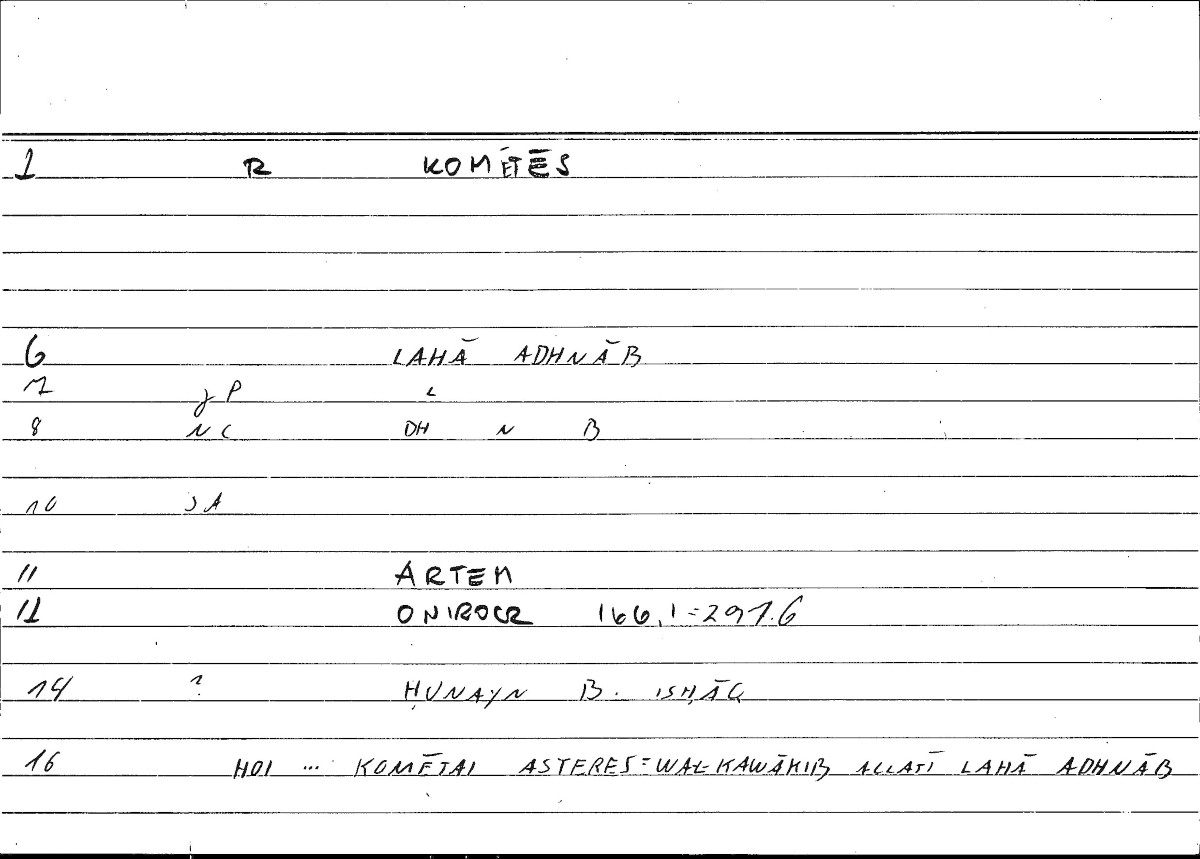 1 R KOMĒTĒS
6 LAHĀ ADHNĀB
7 P L
8 NC DH N B
10 A
11 ARTEM
12 ONIROCR 166,1=297.6
14 ? ḤUNAYN B. ISḤĀQ
16 HOI ... KOMĒTAI ASTERES=WAL-KAWĀKIB ALLATĪ LAHĀ ADHNĀB